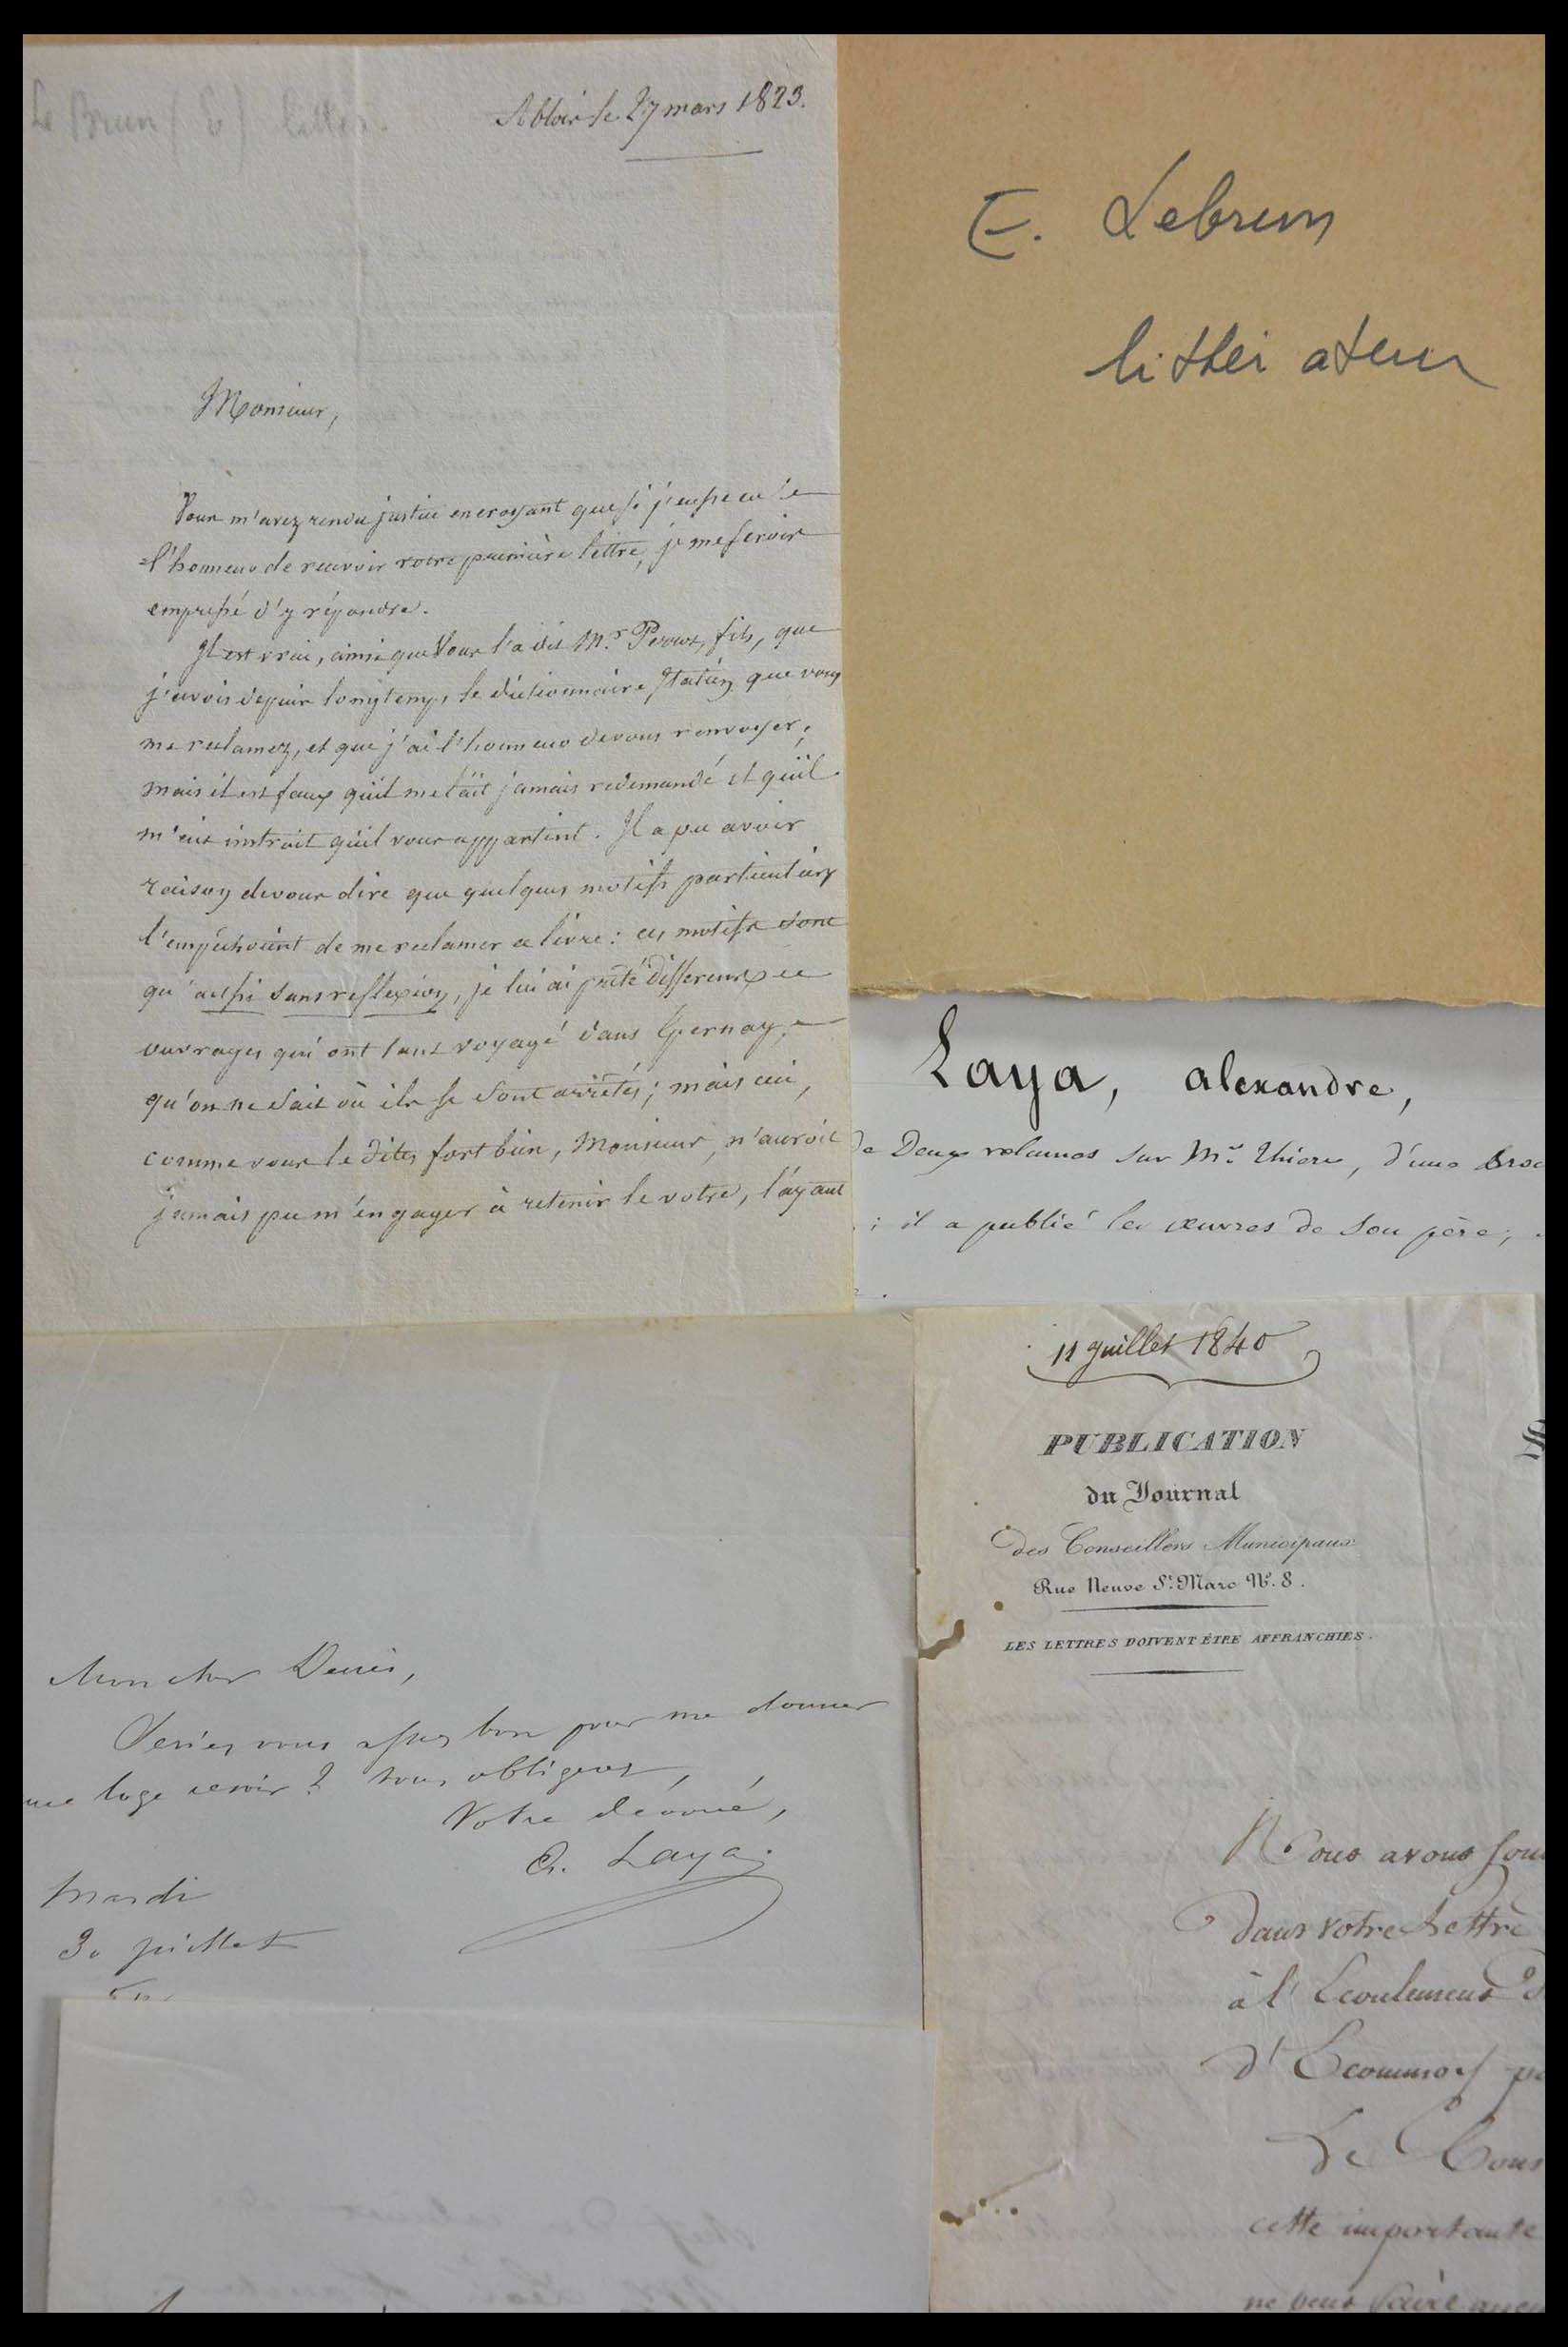 Le Brun (E) litter.
Ablois le 27 mars 1823.
Monsieur,
Vous m'avez rendu justice en croyant que si j'eusse eu
l'honneur de recevoir votre première lettre, je me serois
empressé d'y répondre.
Il est vrai, ainsi que vous l'a dit Mr. fils, que
j'avois depuis longtemps le dictionnaire Italien que vous
me reclamez, et que j'ai l'honneur de vous renvoyer;
mais il est faux qu'il me l'ait jamais redemandé et qu'il
m'eut instruit qu'il vous appartint. Il a pu avoir
raison de vous dire que quelques motifs particuliers
l'empêchoient de me reclamer ce livre: ces motifs sont
qu'aussi sans reflexion, je lui ai prêté differens
ouvrages qui ont tant voyagé dans Epernay,
qu'on ne sait où ils se sont arrêtés; mais ceci,
comme vous le dites fort bien, Monsieur, n'auroit
jamais pu m'engager à retenir le votre, l'ayant
E. Lebrun
littérateur
Laya, alexandre,
de Deux volumes sur Mr. Thiers, d'une broc
; il a publié les œuvres de son père;
Mon cher Denis,
Seriez vous assez bon pour me donner
une loge ce soir? Vous obligerez,
Votre dévoué,
A. Laya
Mardi
30 juillet
11 Juillet 1840
PUBLICATION
du Journal
des Conseillers Municipaux
Rue Neuve St. Marc No. 8.
LES LETTRES DOIVENT ÊTRE AFFRANCHIES.
Nous avons sou
dans votre Lettre
à l'Ecoulement d
d'Ecommoy
Le Cons
cette importante
ne peut faire aucu